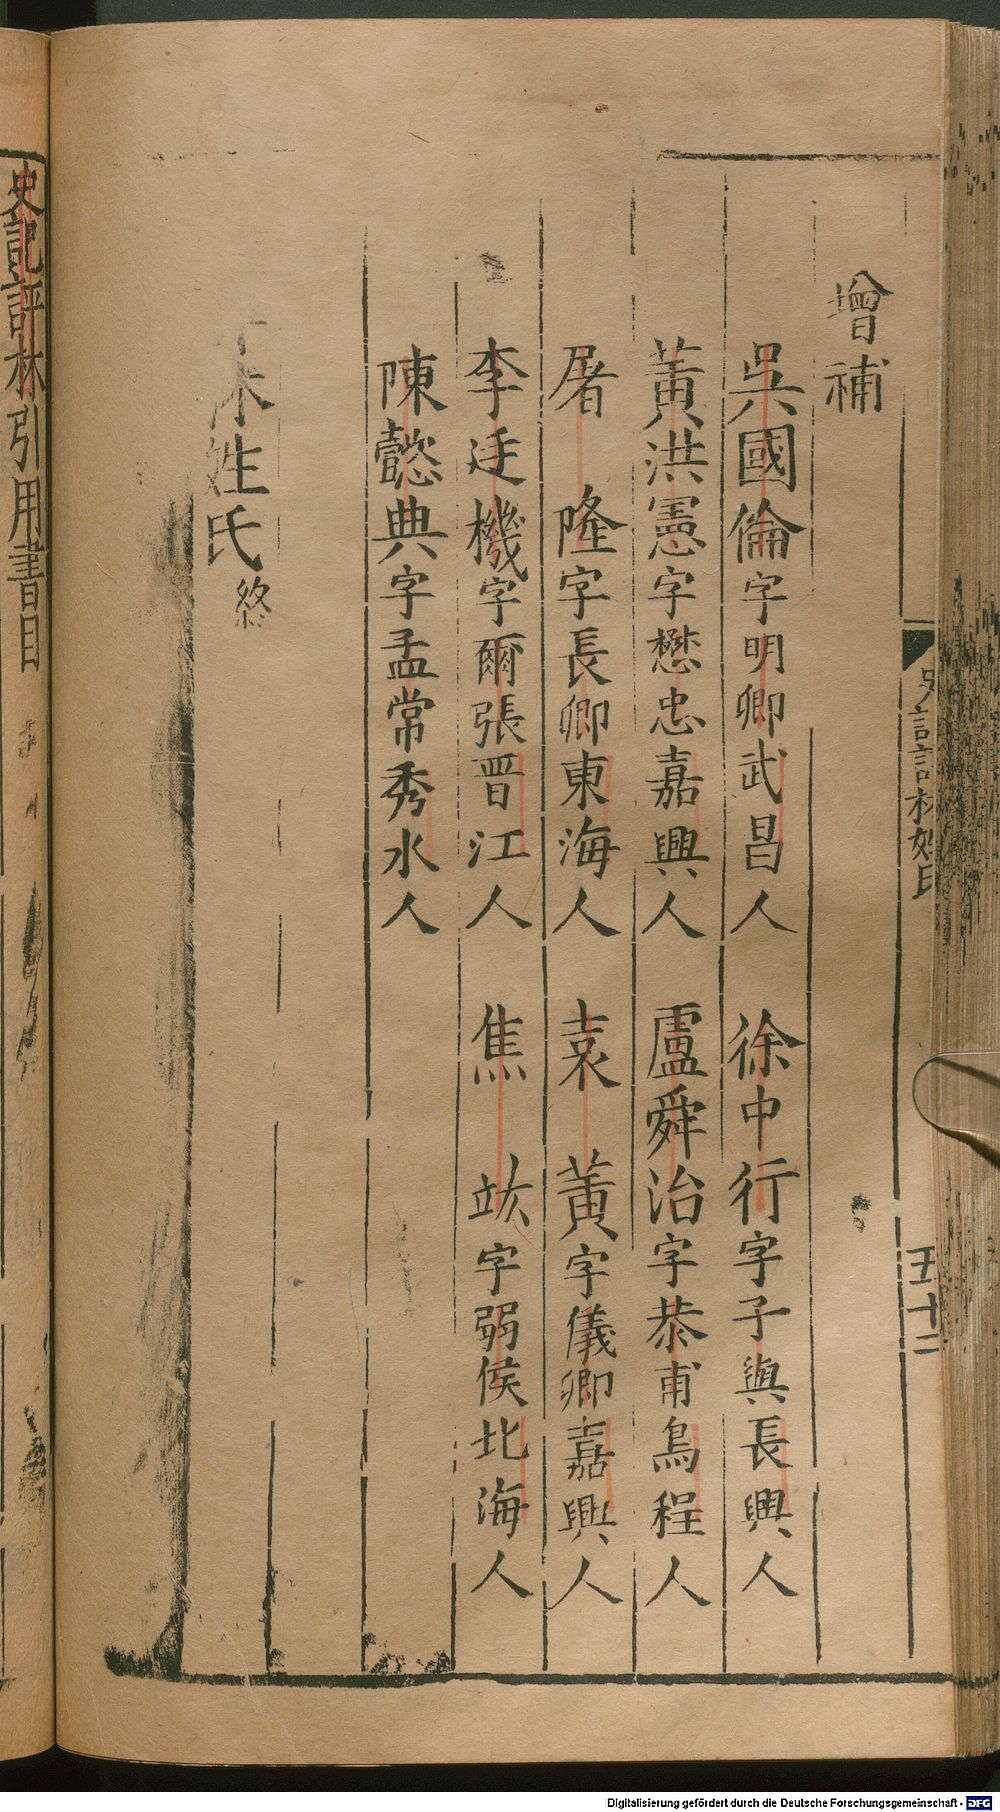 史記評林姓氏
五十二
增補
吳國倫字明卿武昌人 徐中行字子與長興人
黃洪憲字懋忠嘉興人 盧舜治字恭甫烏程人
屠 隆字長卿東海人 袁 黃字儀卿嘉興人
李廷機字爾張晋江人 焦 竑字弱侯北海人
陳懿典字孟常秀水人
林姓氏終
史記評林引用書目
Digitalisierung gefördert durch die Deutsche Forschungsgemeinschaft - DFG